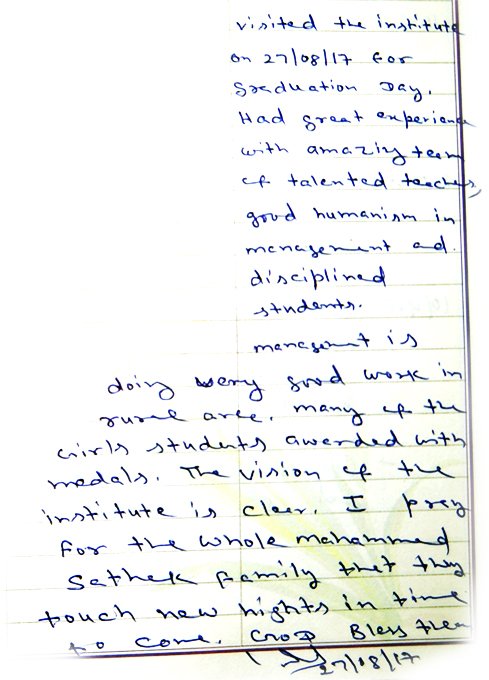 visited the institute
on 27/08/17 for
Graduation Day.
Had great experience
with amazing team
of talented teachers,
good humanism in
management and
disciplined
students.
management is
doing very good work in
rural area. many of the
girls students awarded with
medals. The vision of the
institute is clear. I pray
for the whole mohammed
Sathak family that they
touch new hights in time
to come. God Bless them
27/08/17